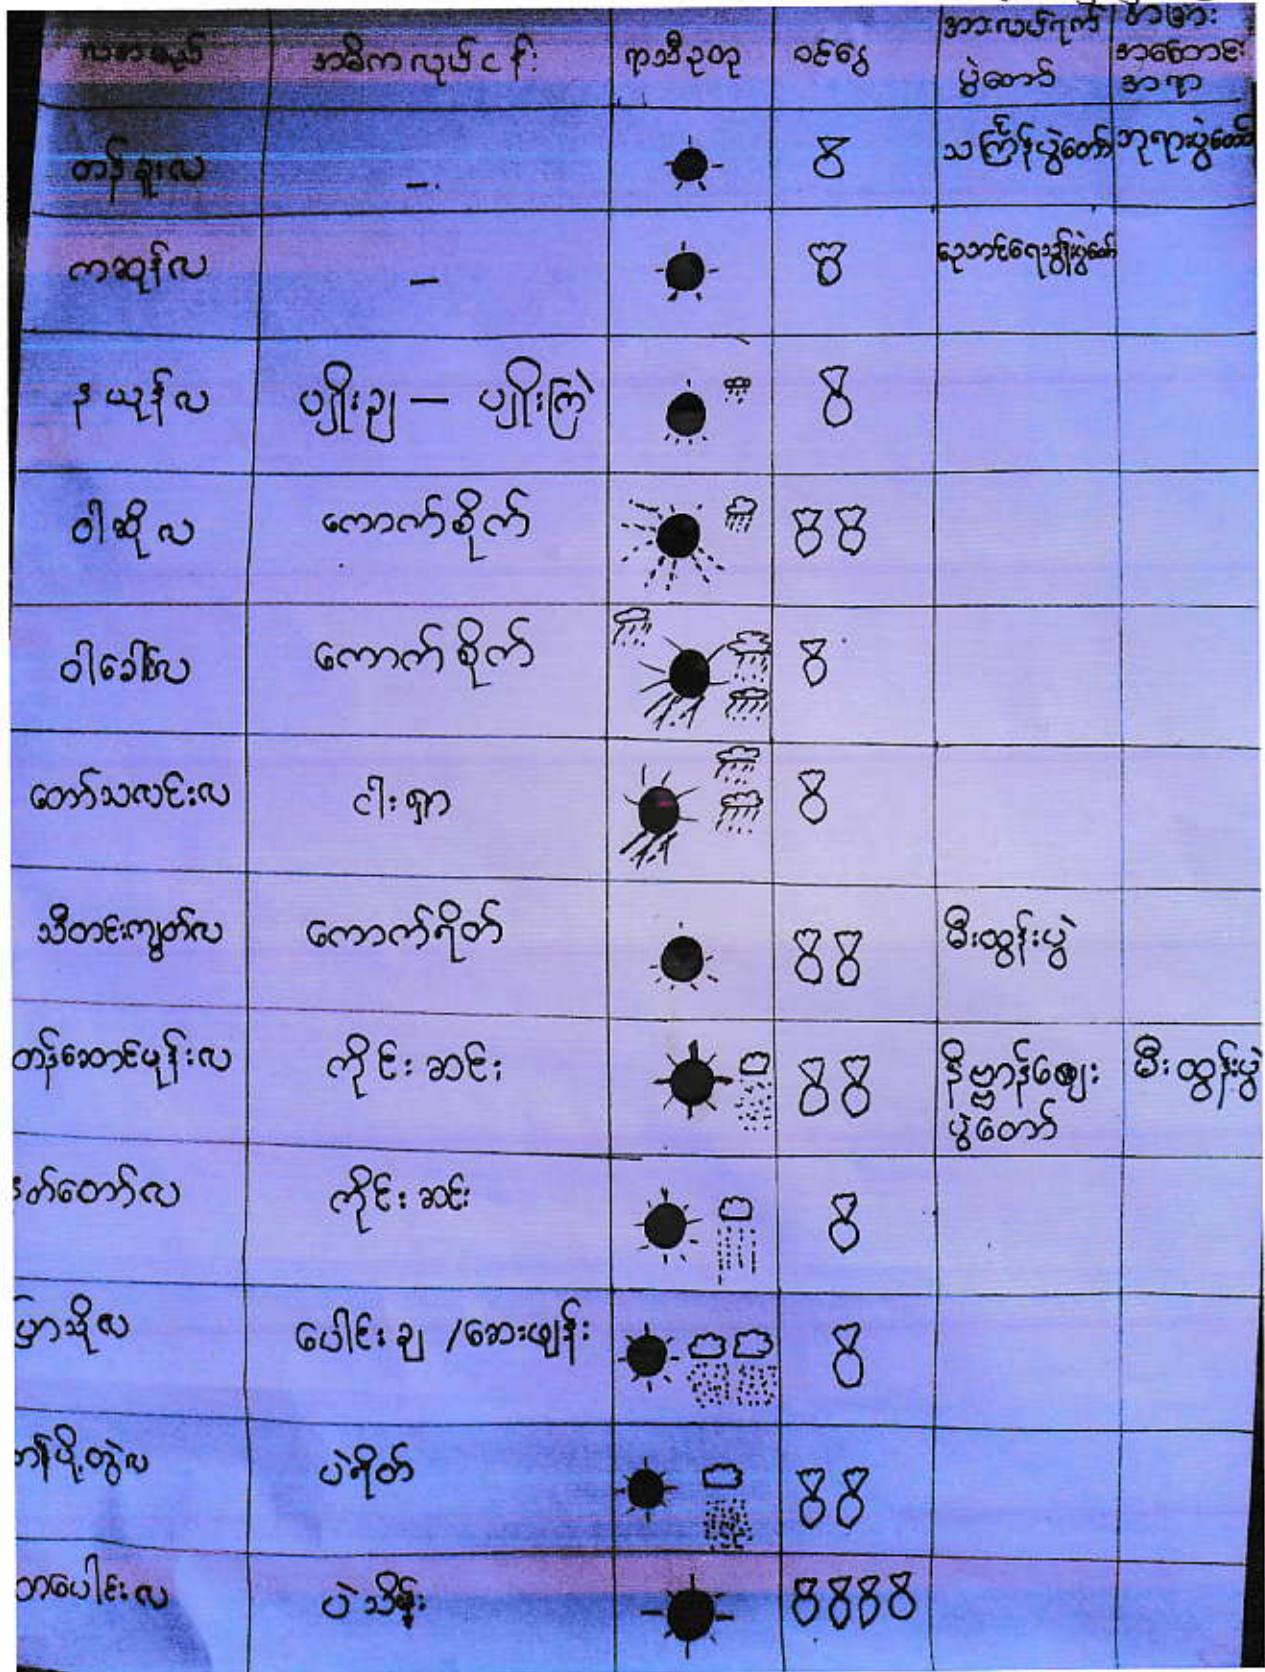 လအမည် အဓိကလုပ်ငန်း ရာသီဥတု ဝင်ငွေ အားလပ်ရက် အခြား
ပွဲတော် အကြောင်း
အရာ
တန်ခူးလ - သင်္ကြန်ပွဲတော် ဘုရားပွဲတော်
ကဆုန်လ - ညောင်ရေသွန်းပွဲတော်
နယုန်လ ပျိုးချ - ပျိုးကြဲ
ဝါဆိုလ ကောက်စိုက်
ဝါခေါင်လ ကောက်စိုက်
တော်သလင်းလ ငါးရှာ
သီတင်းကျွတ်လ ကောက်ရိတ် မီးထွန်းပွဲ
တန်ဆောင်မုန်းလ ကိုင်းဆင်း နိဗ္ဗာန်ဈေး မီးထွန်းပွဲ
ပွဲတော်
နတ်တော်လ ကိုင်းဆင်း
ပြာသိုလ ပေါင်းချ /ဆေးဖျန်း
တပို့တွဲလ ပဲရိတ်
တပေါင်းလ ပဲသိမ်း